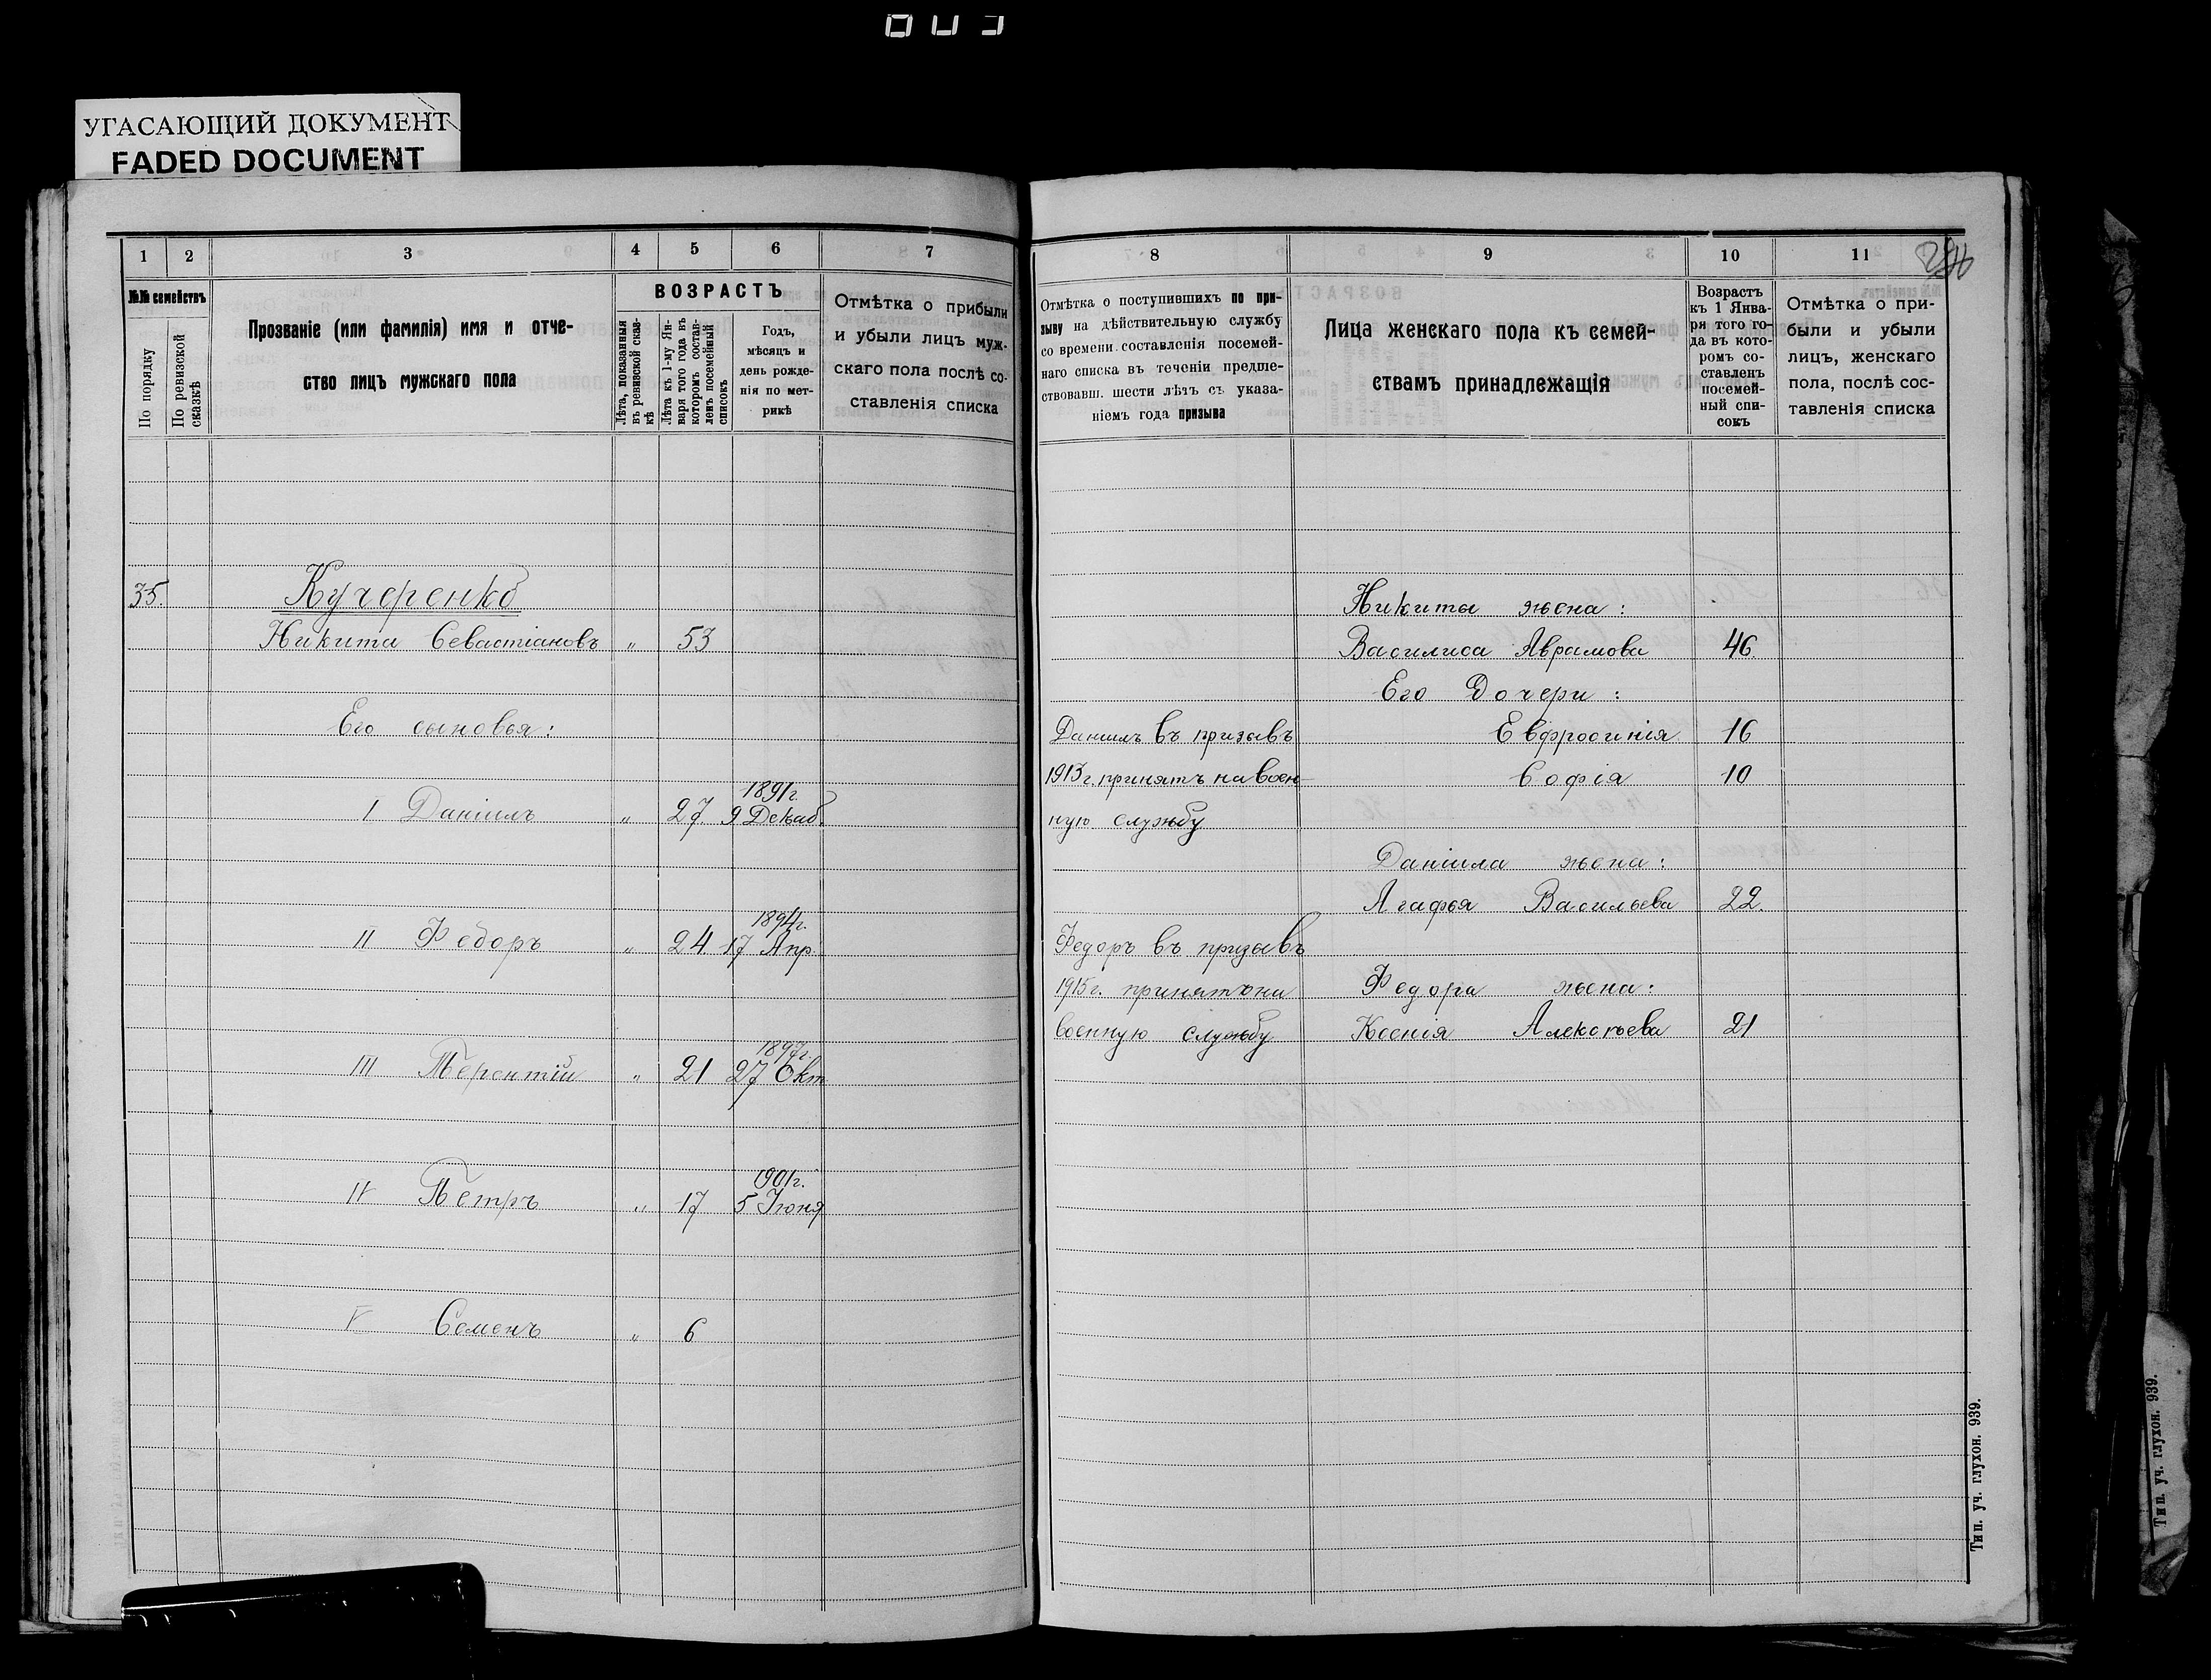 УГАСАЮЩИЙ ДОКУМЕНТ
FADED DOCUMENT
1 2 3 4 5 6 7
№№ семействъ
По порядку
По ревизской сказкѣ
Прозваніе (или фамилія) имя и отче-
ство лицъ мужскаго пола
ВОЗРАСТЪ
Лѣта, показанныя
въ ревизской сказ-
кѣ
Лѣта къ 1-му Ян-
варя того года въ
которомъ состав-
ленъ посемейный
списокъ
Годъ,
мѣсяцъ и
день рожде-
нія по мет-
рикѣ
Отмѣтка о прибыли
и убыли лицъ муж-
скаго пола послѣ со-
ставленія списка
35. Кучеренко
Никита Севастіановъ „ 53
Его сыновья:
1891г.
I Даніилъ „ 27 9 Декаб.
1894г.
II Федоръ „ 24 17 Апр.
1897г.
III Терентій „ 21 27 Окт
1901г.
IV Петръ „ 17 5 Іюня
V Семенъ „ 6
8 9 10 11
Отмѣтка о поступившихъ по при-
зыву на дѣйствительную службу
со времени составленія посемей-
наго списка въ теченіи предше-
ствовавш. шести лѣтъ съ указа-
ніемъ года призыва
Лица женскаго пола къ семей-
ствамъ принадлежащія
Возрастъ
къ 1 Янва-
ря того го-
да въ кото-
ромъ со-
ставленъ
посемей-
ный спи-
сокъ
Отмѣтка о при-
были и убыли
лицъ, женскаго
пола, послѣ сос-
тавленія списка
Никиты жена:
Василиса Аврамова 46.
Его Дочери:
Даніилъ въ призывъ Евфросинія 16
1913г. принятъ на воен- Софія 10
ную службу
Даніила жена:
Агафья Васильева 22.
Федоръ въ призывъ
1915г. принятъ на Федора жена:
военную службу Ксенія Алексѣева 21
Тип. уч. глухон. 939.
Тип. уч. глухон. 939.